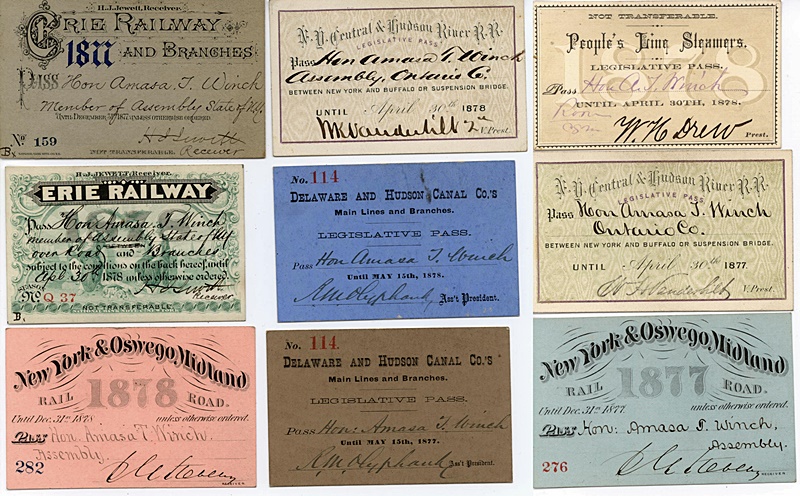 H.J. Jewett, Receiver.
ERIE RAILWAY
1877 AND BRANCHES
PASS Hon Amasa T. Winch
Member of Assembly State of N.Y.
UNTIL DECEMBER 31st 1877, UNLESS OTHERWISE ORDERED.
No 159
H J Jewett
Receiver
NOT TRANSFERABLE.
B.
N.Y. Central & Hudson River R.R.
LEGISLATIVE PASS
Pass Hon Amasa T. Winch
Assembly, Ontario Co.
BETWEEN NEW YORK AND BUFFALO OR SUSPENSION BRIDGE.
UNTIL April 30th 1878
WKVanderbilt 2d V. Prest.
NOT TRANSFERABLE.
1878
People's Line Steamers.
LEGISLATIVE PASS.
Pass Hon A. T. Winch
Room
UNTIL APRIL 30TH, 1878.
W. H. Drew Prest.
H.J. JEWETT, Receiver.
ERIE RAILWAY
Pass Hon Amasa T. Winch
member of Assembly State of NY
over Road and Branches
subject to the conditions on the back hereof, until
Apl 30th 1878 unless otherwise ordered.
SEASON
No Q 37
H J Jewett
Receiver
NOT TRANSFERABLE
B.
No. 114
DELAWARE AND HUDSON CANAL CO.'S
Main Lines and Branches.
LEGISLATIVE PASS.
Pass Hon Amasa T. Winch
Until MAY 15th, 1878.
R M Olyphant Ass't President.
N.Y. Central & Hudson River R.R.
LEGISLATIVE PASS
Pass Hon Amasa T. Winch
Ontario Co.
BETWEEN NEW YORK AND BUFFALO OR SUSPENSION BRIDGE.
UNTIL April 30th 1877.
Wm H Vanderbilt V. Prest.
New York & Oswego Midland
RAIL 1878 ROAD.
Until Dec. 31st 1878 unless otherwise ordered.
Pass Hon. Amasa T. Winch.
Assembly.
282
RECEIVER
No. 114.
DELAWARE AND HUDSON CANAL CO.'S
Main Lines and Branches.
LEGISLATIVE PASS.
Pass Hon: Amasa T. Winch
Until MAY 15th, 1877.
R M Olyphant Ass't President.
New York & Oswego Midland
RAIL 1877 ROAD.
Until Dec. 31st 1877. unless otherwise ordered.
Pass Hon: Amasa T. Winch,
Assembly.
276
RECEIVER